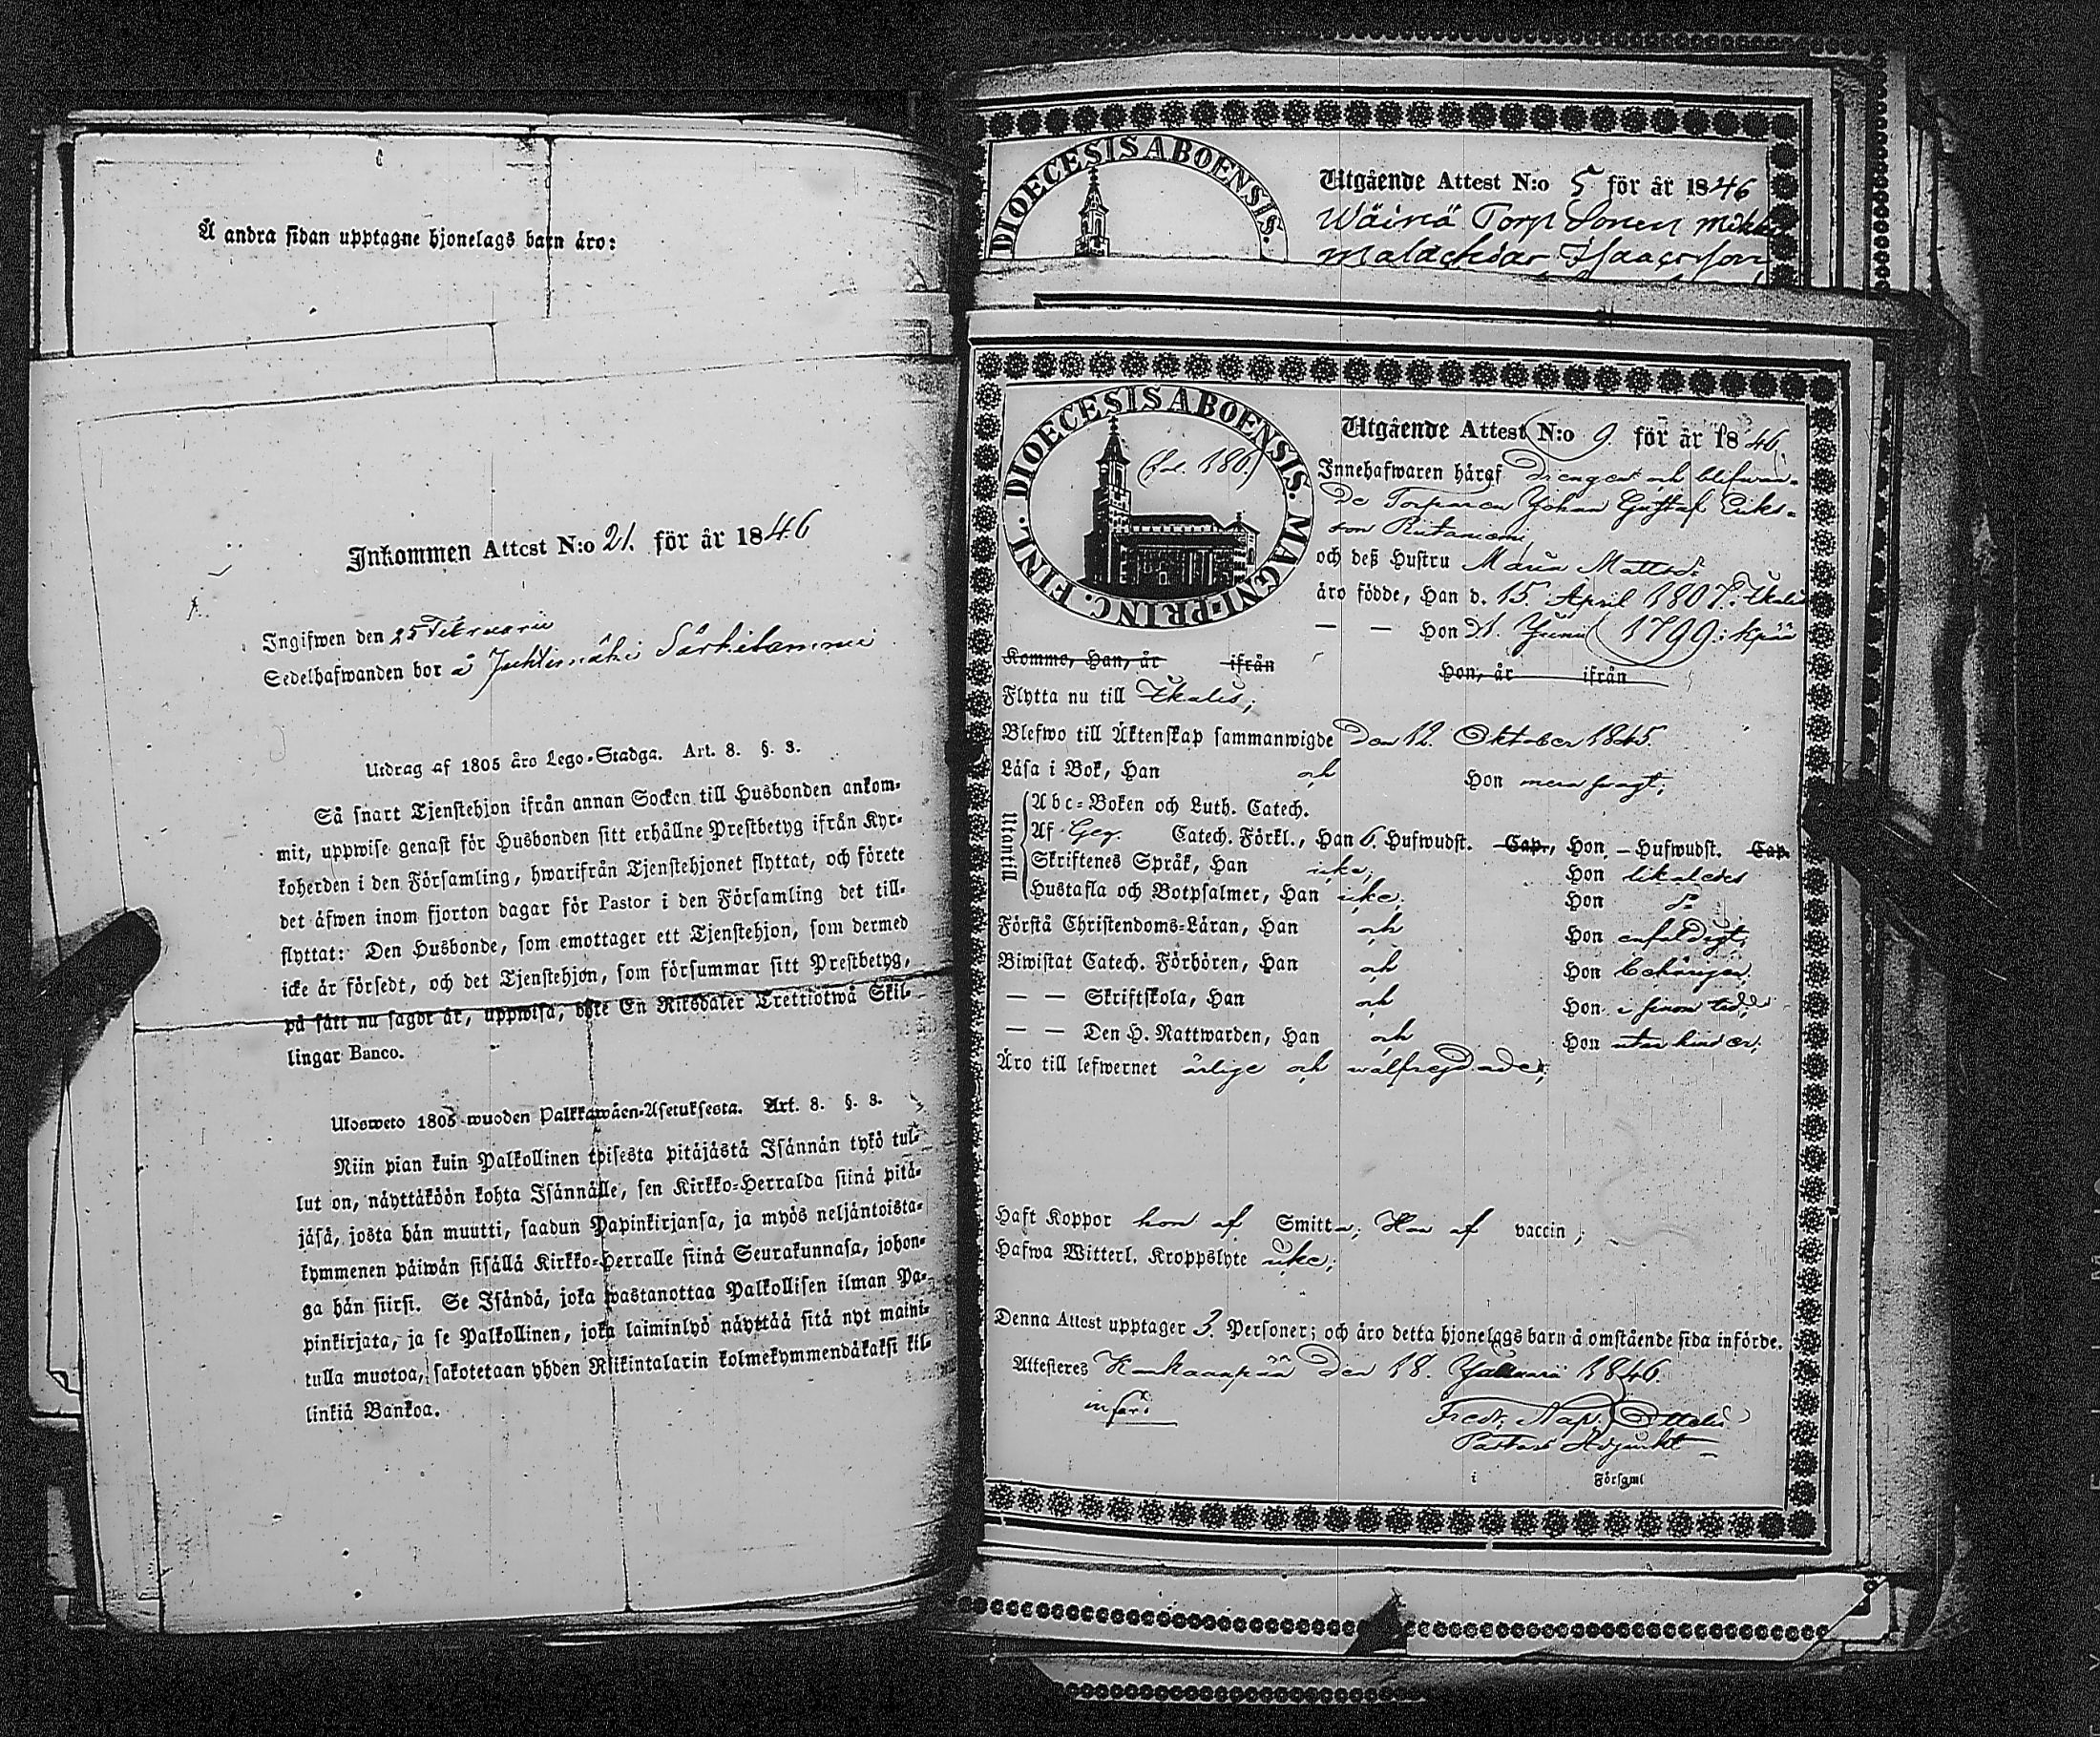 Å andra sidan upptagne hjonelags barn äro:
Inkommen Attest N:o 21. för år 1846
Ingifwen den 25 Februarii
Sedelhafwanden bor å Juhtimäki Särkilammi
Utdrag af 1805 års Lego-Stadga. Art. 8. §. 3.
Så snart Tjenstehjon ifrån annan Socken till Husbonden ankom-
mit, uppwise genast för Husbonden sitt erhållne Prestbetyg ifrån Kyr-
koherden i den Församling, hwarifrån Tjenstehjonet flyttat, och förete
det äfwen inom fjorton dagar för Pastor i den Församling det till-
flyttat: Den Husbonde, som emottager ett Tjenstehjon, som dermed
icke är försedt, och det Tjenstehjon, som försummar sitt Prestbetyg,
på sätt nu sagdt är, uppwisa, böte En Riksdaler Trettiotwå Skil-
lingar Banco.
Ulosweto 1805 wuoden Palkkawäen-Asetuksesta. Art. 8. §. 3.
Niin pian kuin Palkollinen toisesta pitäjästä Isännän tykö tul-
lut on, näyttäköön kohta Isännälle, sen Kirkko-Herralda siinä pitä-
jäsä, josta hän muutti, saadun Papinkirjansa, ja myös neljäntoista-
kymmenen päiwän sisällä Kirkko-Herralle siinä Seurakunnasa, johon-
ga hän siirsi. Se Isändä, joka wastanottaa Palkollisen ilman Pa-
pinkirjata, ja se Palkollinen, joka laiminlyö näyttää sitä nyt maini-
tulla muotoa, sakotetaan yhden Riikintalarin kolmekymmendäkaksi kil-
linkiä Bankoa.
DIOECESIS ABOENSIS.
Utgående Attest N:o 5 för år 1846
Wäinä Torp Sonen Mikk
Malachias Isaacsson
DIOECESIS ABOENSIS. MAGNI-PRINC. FINL.
(fol. 180)
Utgående Attest N:o 9. för år 1846.
Innehafwaren häraf Drengen och blifwan-
de Torparen Johan Gustaf Eriks-
son Rutaniemi
och deß Hustru Maria Mattsd:r
äro födde, Han d. 15. April 1807. i Ikalis
— — Hon d 1. Junii 1799. i Kpää
Komne, Han, år ifrån Hon, år ifrån
Flytta nu till Ikalis;
Blefwo till Äktenskap sammanwigde den 12. Oktober 1845.
Läsa i Bok, Han och Hon mera swagt;
Utantill
Abc-Boken och Luth. Catech.
Af Geg. Catech. Förkl., Han 6. Hufwudst. Cap., Hon – Hufwudst. Cap.
Skriftenes Språk, Han icke; Hon likaledes
Hustafla och Botpsalmer, Han icke; Hon d:o
Förstå Christendoms-Läran, Han och Hon enfaldigt;
Biwistat Catech. Förhören, Han och Hon behörigen;
— — Skriftskola, Han och Hon i sinom tid;
— — Den H. Nattwarden, Han och Hon utan hinder;
Äro till lefwernet ärlige och wälfregdade;
Haft Koppor hon af Smitta; Han af vaccin;
Hafwa Witterl. Kroppslyte icke;
Denna Attest upptager 3. Personer; och äro detta hjonelags barn å omstående sida införde.
Attesteres Kankaanpää den 18. Januarii 1846.
införd
Fredr. Nap.
Pastors Adjunkt
i Församl